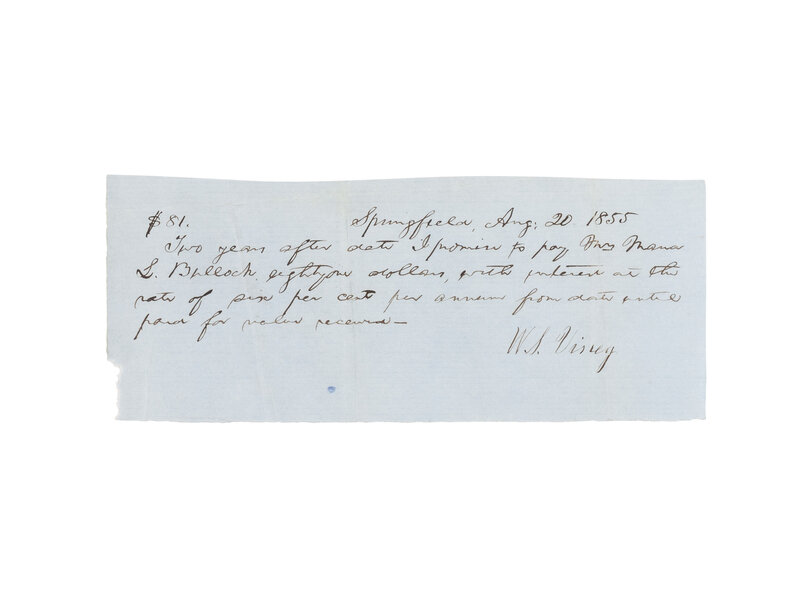 $81. Springfield, Aug; 20. 1855
Two years after date I promise to pay Mrs Maria
L. Bullock eightyone dollars, with interest at the
rate of six per cent per annum from date until
paid for value received—
W. S. Viney